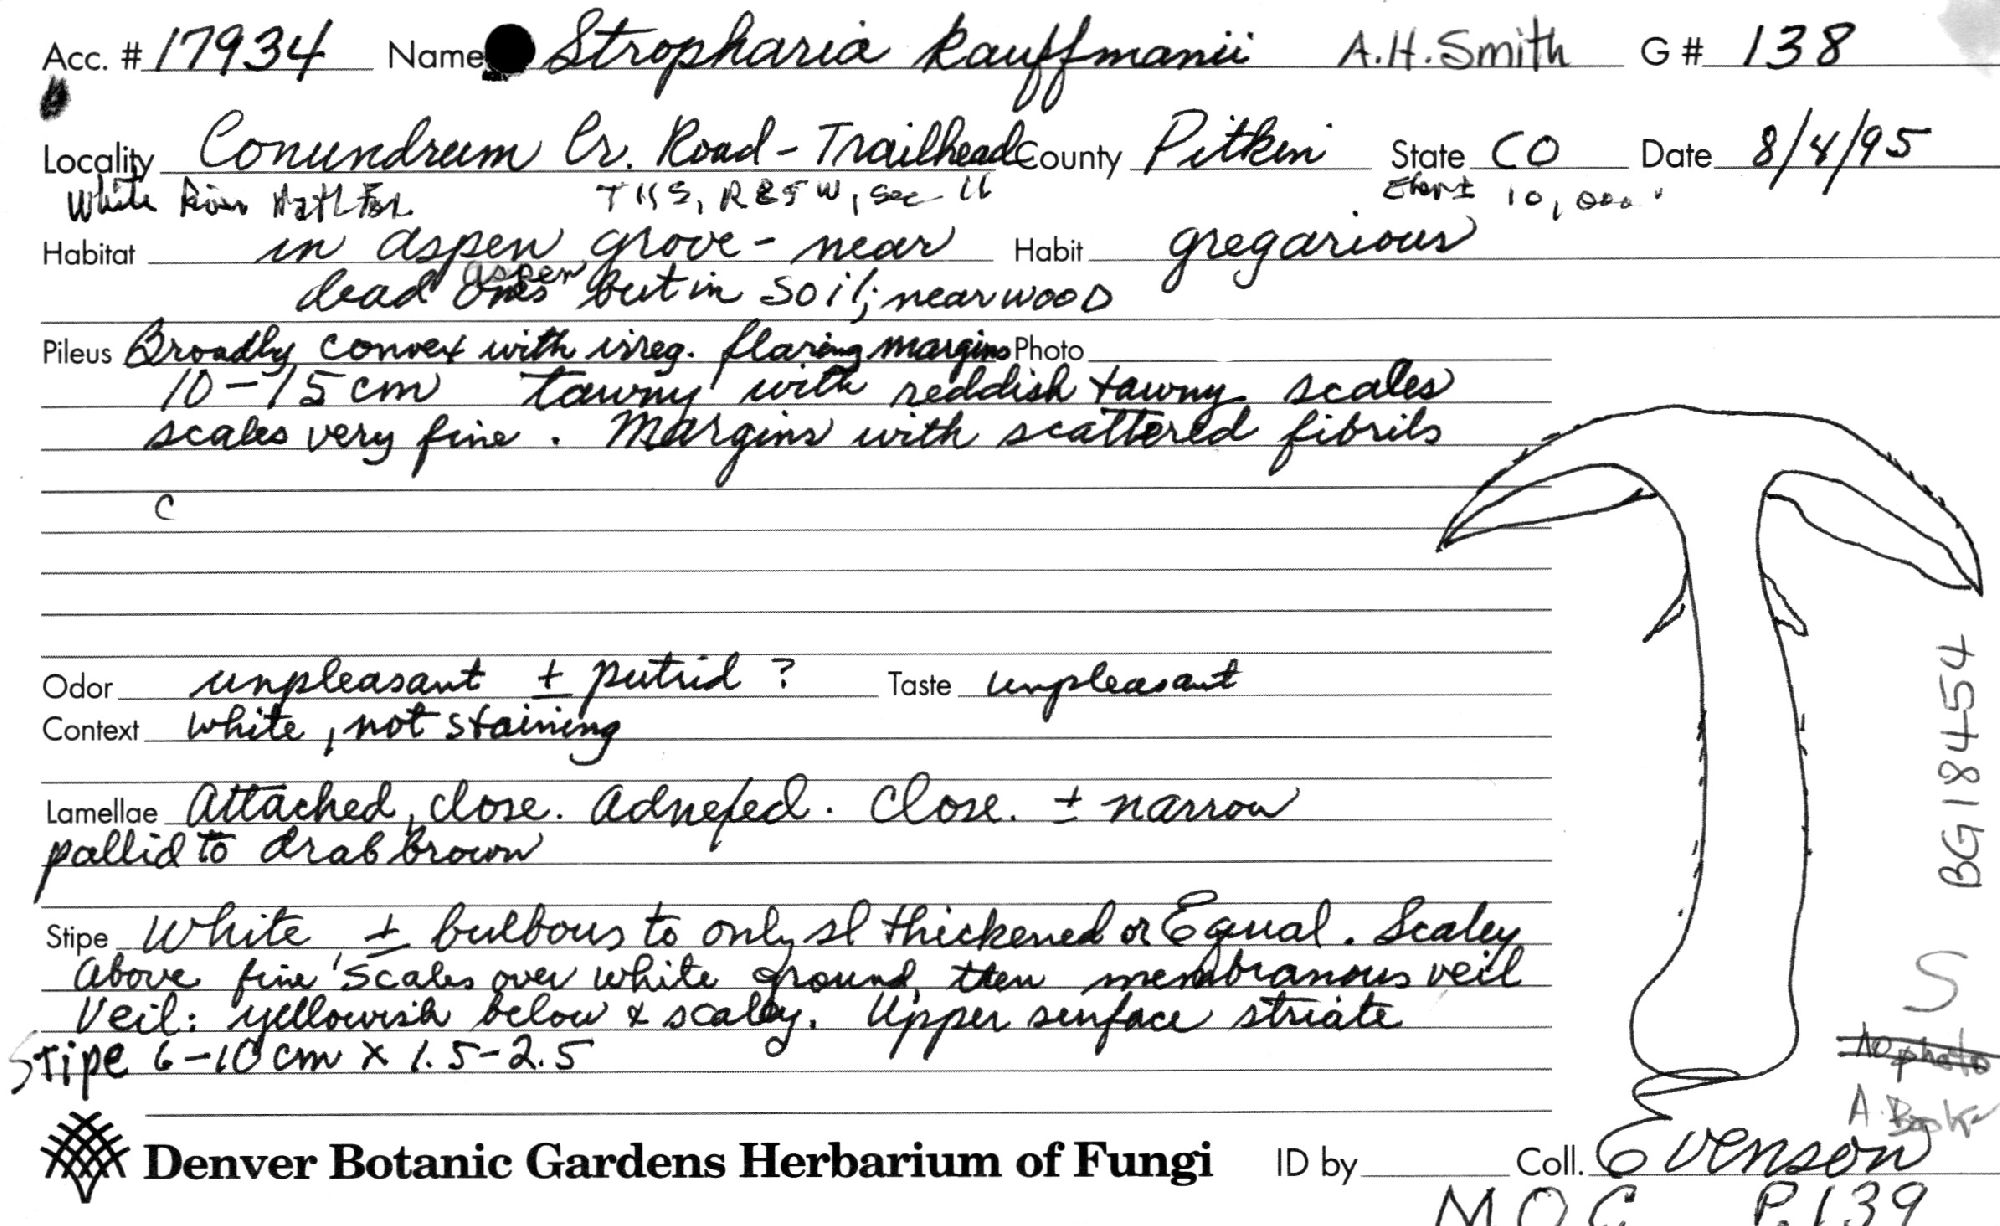 Acc. # 17934 Name Stropharia kauffmanii A.H. Smith G # 138
Locality Conundrum Cr. Road - Trailhead County Pitkin State CO Date 8/4/95
White River Natl For T11S, R85W, Sec 16 10,000'
Habitat in aspen grove - near Habit gregarious
aspen
dead ones but in soil; near wood
Pileus Broadly convex with irreg. flaring margins Photo
10-15 cm tawny with reddish tawny scales
scales very fine. Margins with scattered fibrils
c
Odor unpleasant ± putrid ? Taste unpleasant
Context white, not staining
Lamellae Attached, close. Adnexed. Close. ± narrow
pallid to drab brown
Stipe White, ± bulbous to only sl thickened or Equal. Scaley
Above fine scales over white ground, then membranous veil
Veil: yellowish below & scaley. Upper surface striate
Stipe 6-10 cm x 1.5-2.5
BG18454
S
No photo
A.
Denver Botanic Gardens Herbarium of Fungi ID by Coll. Evenson
MOC P.139